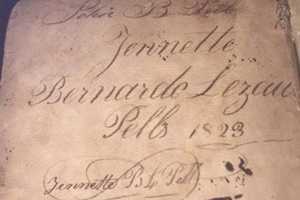 B.
Jennette
Bernardo Lezeau
Pell 1823
Jennette B L Pell